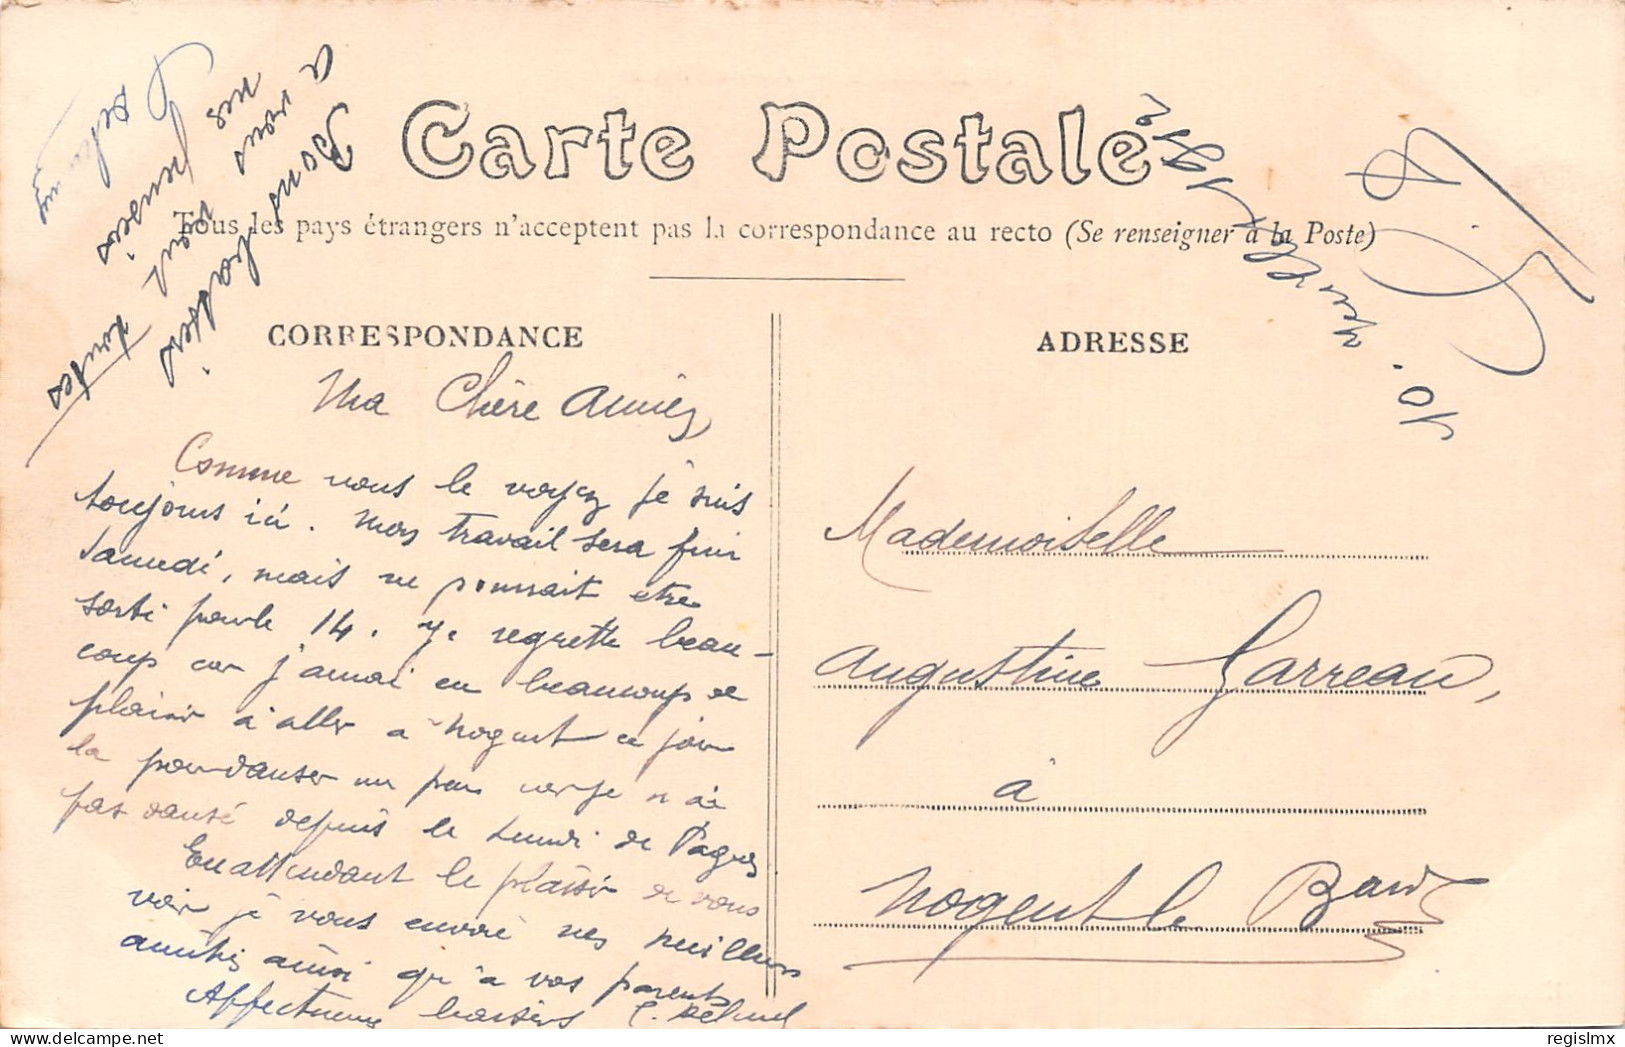 Carte Postale
Tous les pays étrangers n'acceptent pas la correspondance au recto (Se renseigner à la Poste)
CORRESPONDANCE
ADRESSE
10. Juillet 191
Ma Chère Amie
Comme vous le voyez je suis
toujours ici. Mon travail sera fini
Samedi, mais ne pourrait etre
sorti pour le 14. Je regrette beau-
coup car j'amai eu beaucoup de
plaisir à aller a Nogent ce jour
la pour danser un peu car je n'ai
pas dansé depuis le Lundi de Paques
En attendant le plaisir de vous
voir je vous envoie mes meilleurs
amitiés ainsi qu'à vos parents
Affectueux baisers
Bons baisers
a vous
toutes
mes
Mademoiselle
Augustine Garreau,
à
Nogent le
regislmx